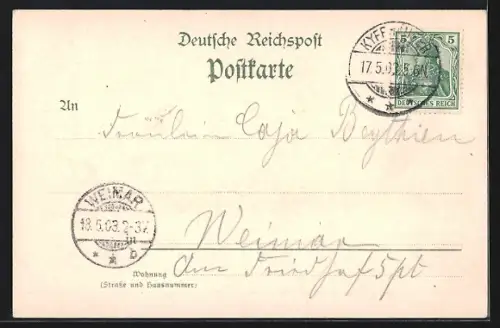 Deutsche Reichspost
Postkarte
KYFFHÄUSER
17.5.03.5-6N
5 5
DEUTSCHES REICH
An
Fräulein Caja Beythien
WEIMAR
18.5.03.2-3N
b
in
Weimar
Am Friedhof 5 pt
Wohnung
(Straße und Hausnummer)